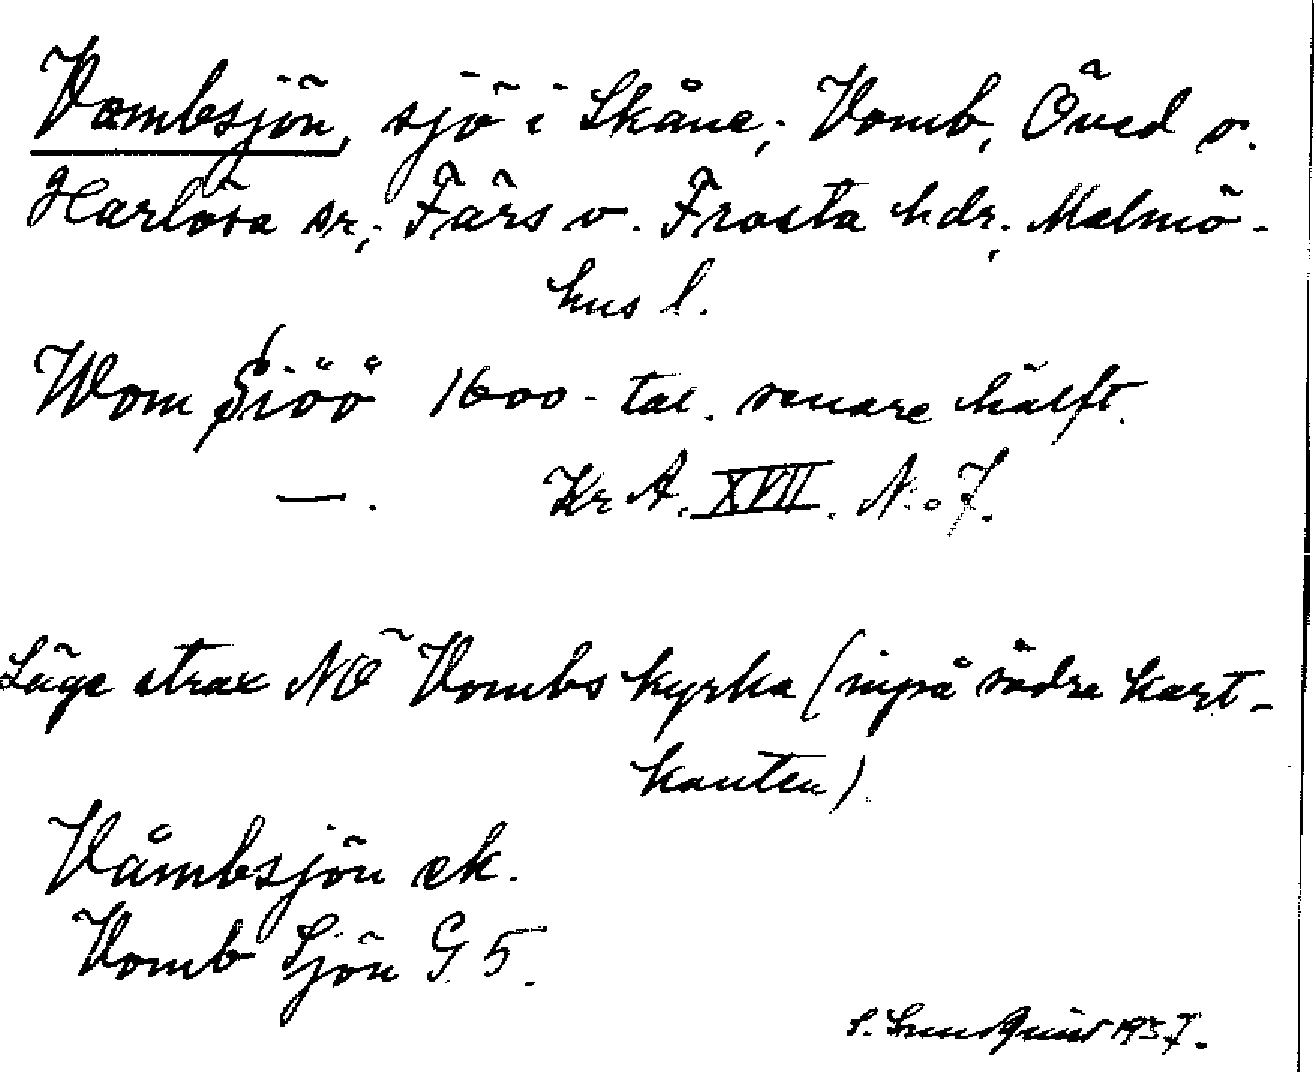 Vombsjön, sjö i Skåne; Vomb, Öved o.
Harlösa sr; Färs o. Frosta hdr; Malmö-
hus l.
Wom Siöö 1600-tal. senare hälft.
—. Kr A. XVII. N:o 7.
Läge strax NÖ Vombs kyrka (inpå södra kart-
kanten).
Våmbsjön ek.
Vomb Sjön G 5.
S. Lundquist 1937.